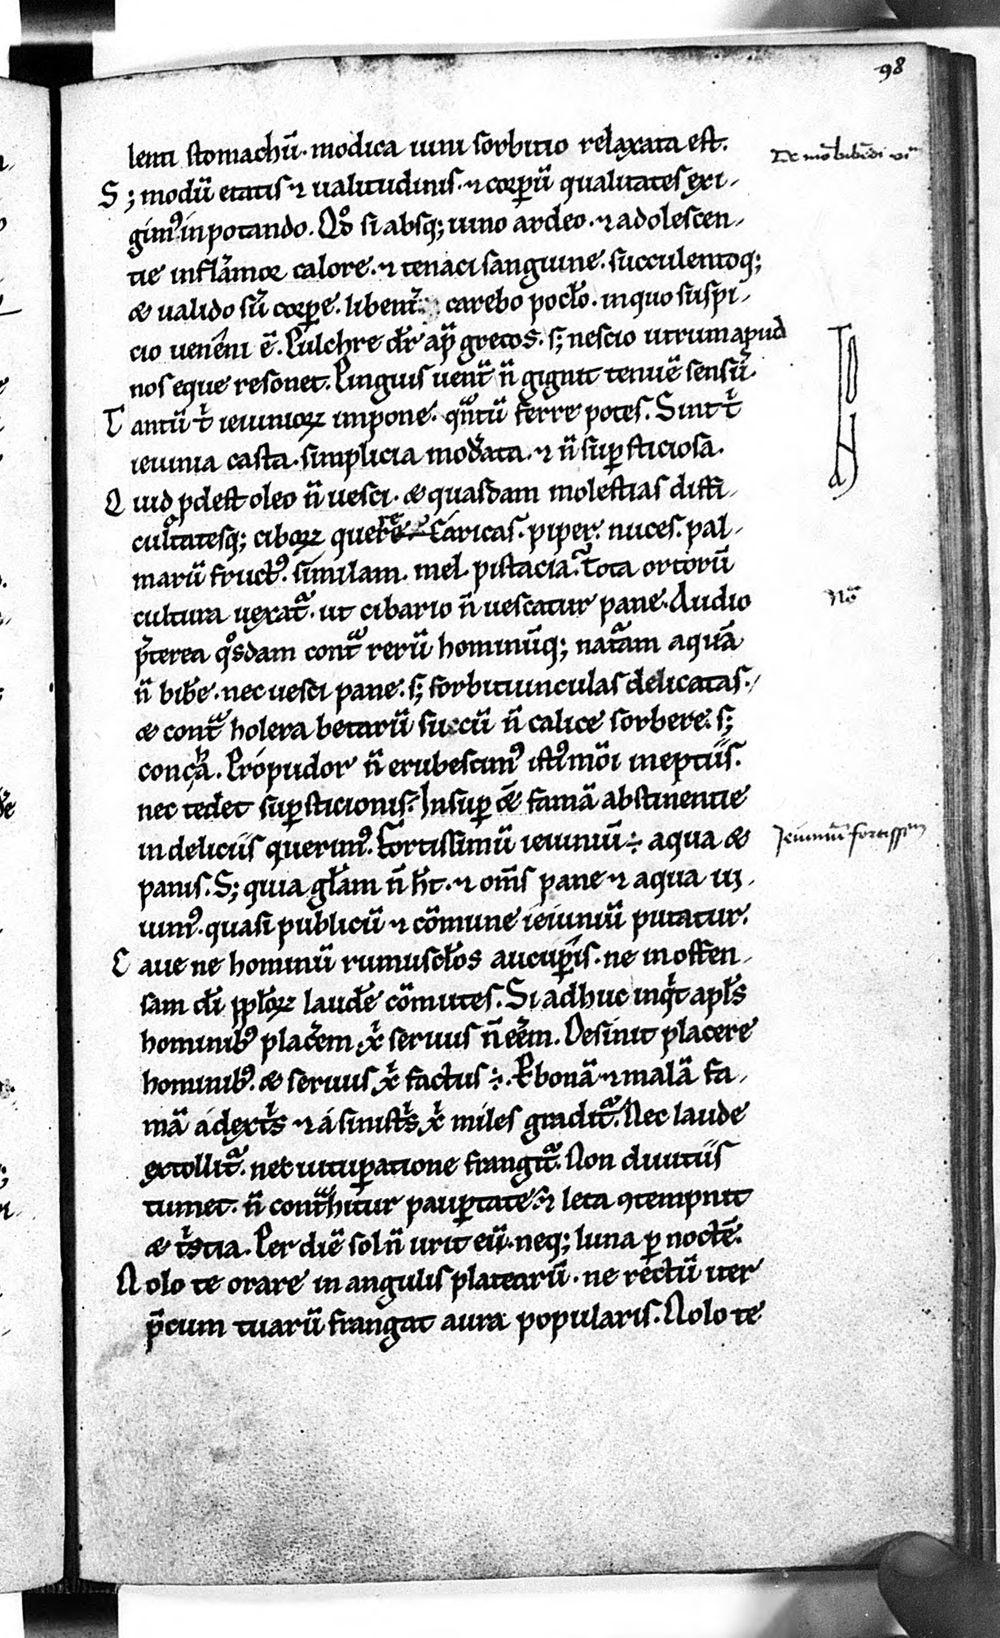 98
lenti stomachũ· modica uini sorbitio relaxata est.
De mõ bibẽdi viñ
S; modũ etatis ⁊ ualitudinis· ⁊ corꝑũ qualitates exi-
gimꝰ in potando. Qđ si absq; uino ardeo· ⁊ adolescen-
tie inflãmor calore· ⁊ tenaci sanguine· succulentoq;
& ualido sũ corꝑe· libent̃ carebo pocło· in quo suspi-
cio uenẽni ẽ. Pulchre dr̃ apᷓ grecos· s; nescio utrum apud
nos eque resonet. Pinguis uent̃ ñ gignit tenuẽ sensũ.
Tantũ tⁱ ieiunioꝝ impone· qᷓntũ ferre potes. Sint tⁱ
ieiunia casta· simplicia modẽata· ⁊ ñ suꝑsticiosa.
Quid ꝓdest oleo ñ uesci· & quasdam molestias diffi-
cultatesq; ciboꝝ querere· Caricas· piper· nuces· pal-
marũ fructꝰ· similam· mel· pistacia· Tota ortorũ
cultura uexatᷓ· ut cibario ñ uescatur pane. Audio
p̃terea qͦsdam contᷓ rerũ hominũq; natᷓam aquã
Noᷓ
ñ bibẽ· nec uesci pane· s; sorbitiunculas delicatas·
& contᷓ holera betarũ succũ ñ calice sorbere· s;
conça. Pro pudor ñ erubescimꝰ istiꝰmõi ineptiis·
nec tedet suꝑsticionis? Insuꝑ & famã abstinentie
in deliciis querimꝰ. Fortissimũ ieiuniũ ÷ aqua &
Jeiuniũ fortissim
panis. S; quia gł̃am ñ ht̃· ⁊ om̃s pane ⁊ aqua ui-
uimꝰ· quasi publicũ ⁊ cõmune ieiuniũ putatur.
Caue ne hominũ rumuscłos aucuꝑis· ne in offen-
sam di ppłoꝝ laudẽ cõmutes. Si adhuc inqͥt apłs
hominibꝰ placẽem xͥ seruus ñ eẽm. Desinit placere
hominibꝰ· & seruus xͥ factus ÷. P bonã ⁊ malã fa-
mã a dextⁱs ⁊ á sinistⁱs xͥ miles graditᷓ. Nec laude
extollitᷓ· nec uituꝑatione frangitᷓ. Non diuitiis
tumet· ñ contᷓhitur pauꝑtate· ⁊ leta ꝯtempnit
& tⁱstia. Per diẽ sol ñ urit eũ· neq; luna ꝑ noctẽ.
Nolo te orare in angulis platearũ· ne rectũ iter
p̃cum tuarũ frangat aura popularis. Nolo te